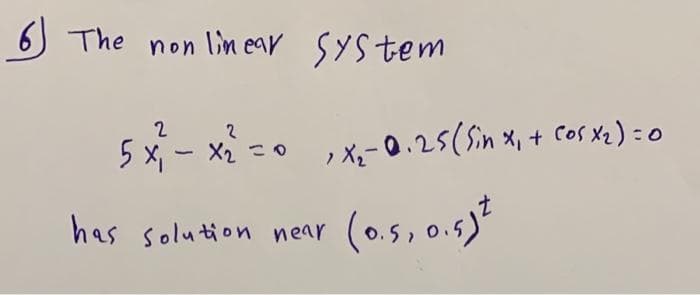 6) The non linear system
5x₁² - x₂² = 0 , x₂ - 0.25(Sin x₁ + Cos x₂) = 0
has solution near (0.5, 0.5)ᵗ